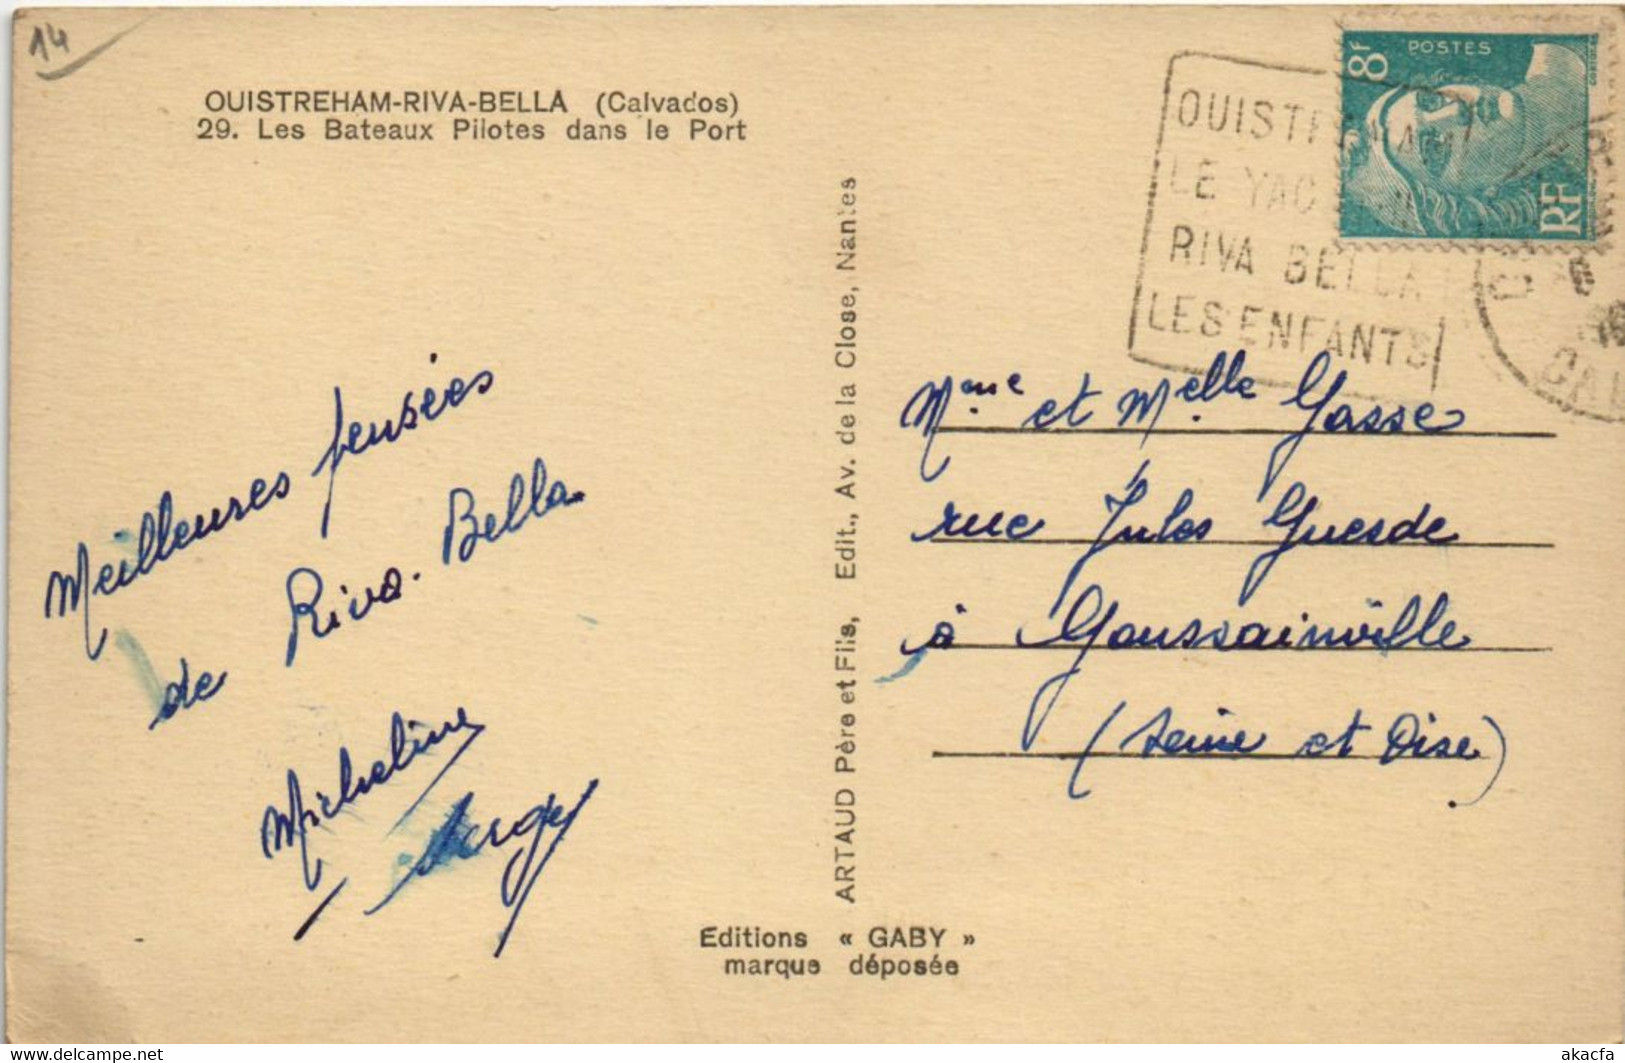 14
OUISTREHAM-RIVA-BELLA (Calvados)
29. Les Bateaux Pilotes dans le Port
Meilleures pensées
de Riva-Bella
Micheline
Serge
ARTAUD Père et Fils, Edit., Av. de la Close, Nantes
Editions « GABY »
marque déposée
8F
POSTES
RF
OUISTREHAM
LE YAC
RIVA BELLA
LES ENFANTS
CAL
Mme et Melle Gosse
rue Jules Guesde
à Goussainville
(Seine et Oise)
delcampe.net
akacfa